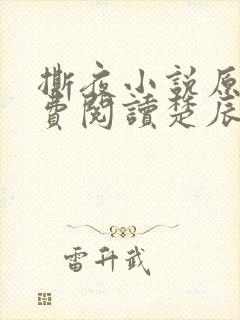 撕夜小説原
費閱讀楚辰
雷升武